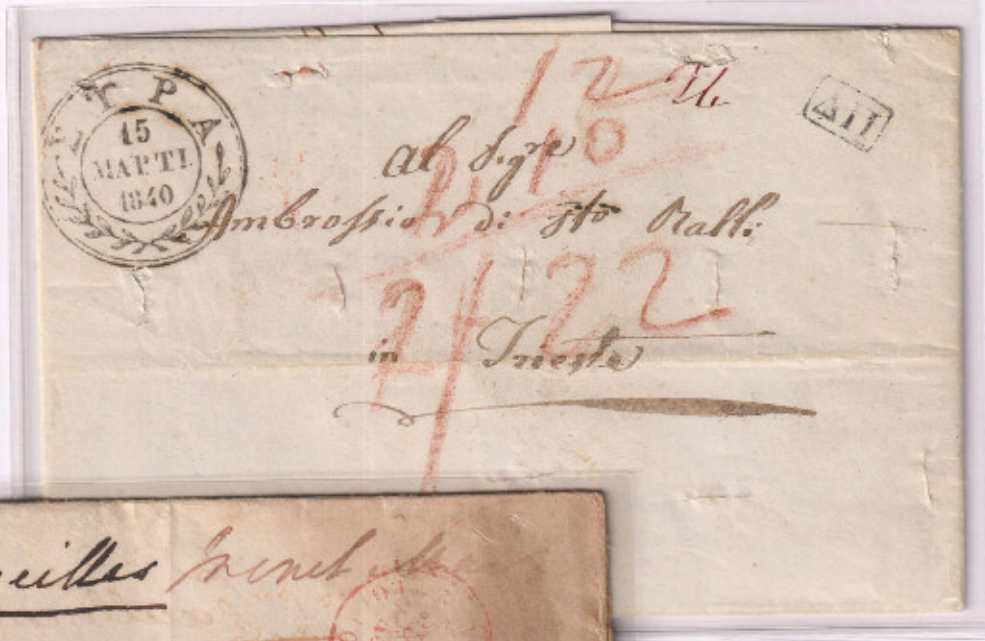 ΣΥΡΑ
15
ΜΑΡΤΙ.
1840
12
ΔΠ
Al Sigre
Ambrossio di sto Ralli
in Trieste
22
eilles